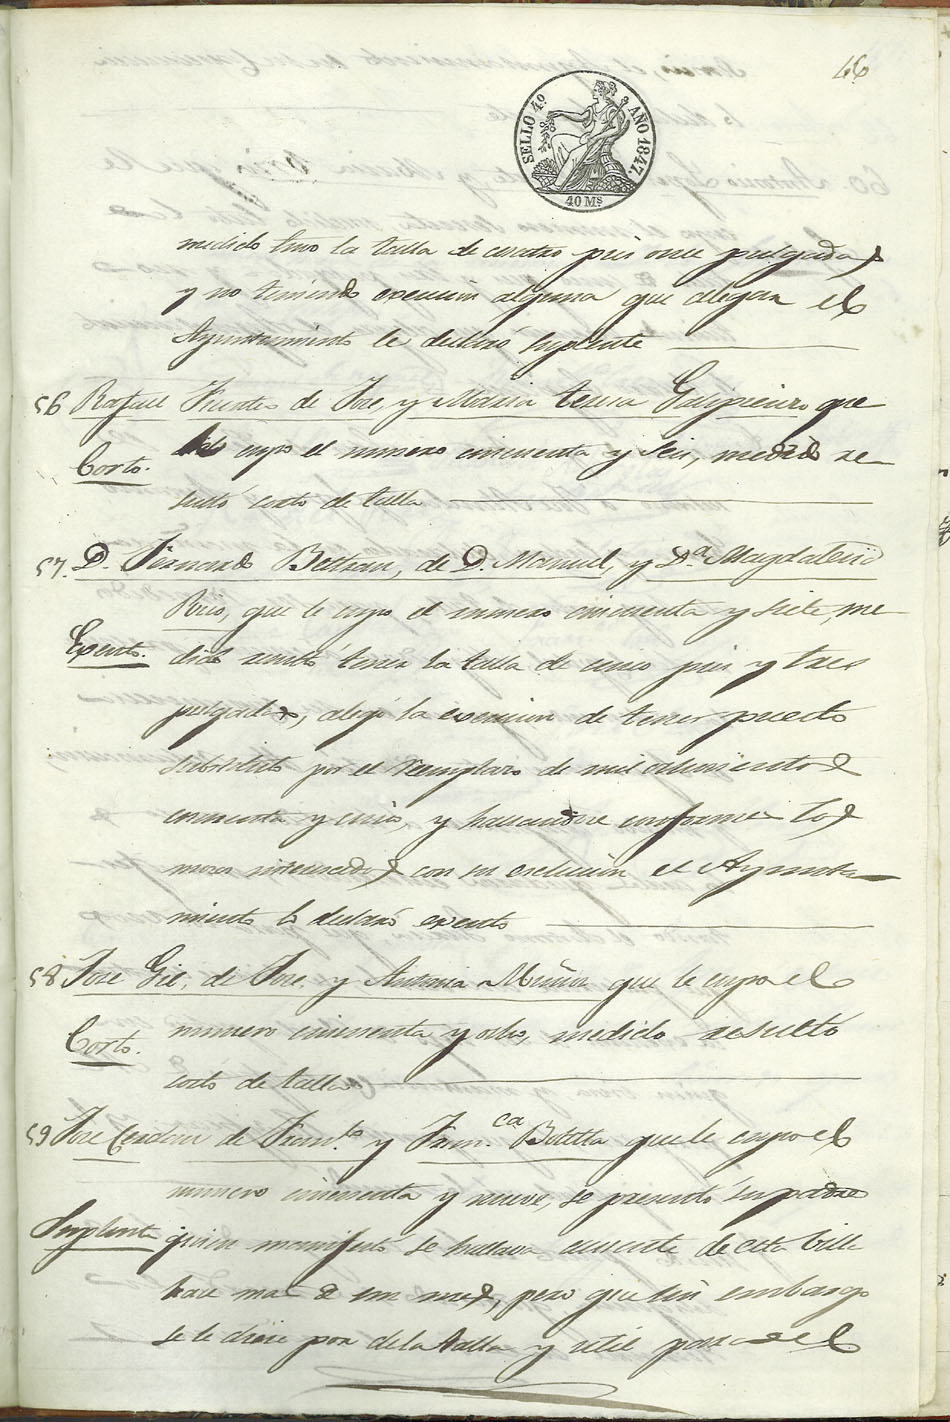 46
SELLO 4º AÑO 1847.
40 Ms
medido tuvo la talla de cuatro pies once pulgadas
y no teniendo exencion alguna que alegar el
Ayuntamiento le declaró suplente
56 Rafael Fuentes de Jose, y Maria Teresa que
cupo el numero cincuenta y seis, medido re
Corto.
sultó corto de talla
57. D. Fernando Beltran, de D. Manuel, y D.ª Magdalena
Rico, que le cupo el numero cincuenta y siete, me
Exento.
dido resultó tener la talla de cinco pies y tres
pulgadas, alegó la exencion de tener puesto
substituto por el reemplazo de mil ochocientos
cuarenta y cinco, y hallandose conformes los
mozos interesados con su exclusion el Ayunta
miento lo declaró exento
58 Jose Gil, de Jose, y Antonia Muñoz que le cupo el
Corto.
numero cincuenta y ocho, medido resultó
corto de talla
59 Jose Cerdan de y Fran.ca Botella que le cupo el
numero cincuenta y nueve, se presentó su padre
Suplente
quien manifestó se hallava ausente de esta Villa
hace mas de un mes, pero que sin embargo
se le diese por de la talla y util para el